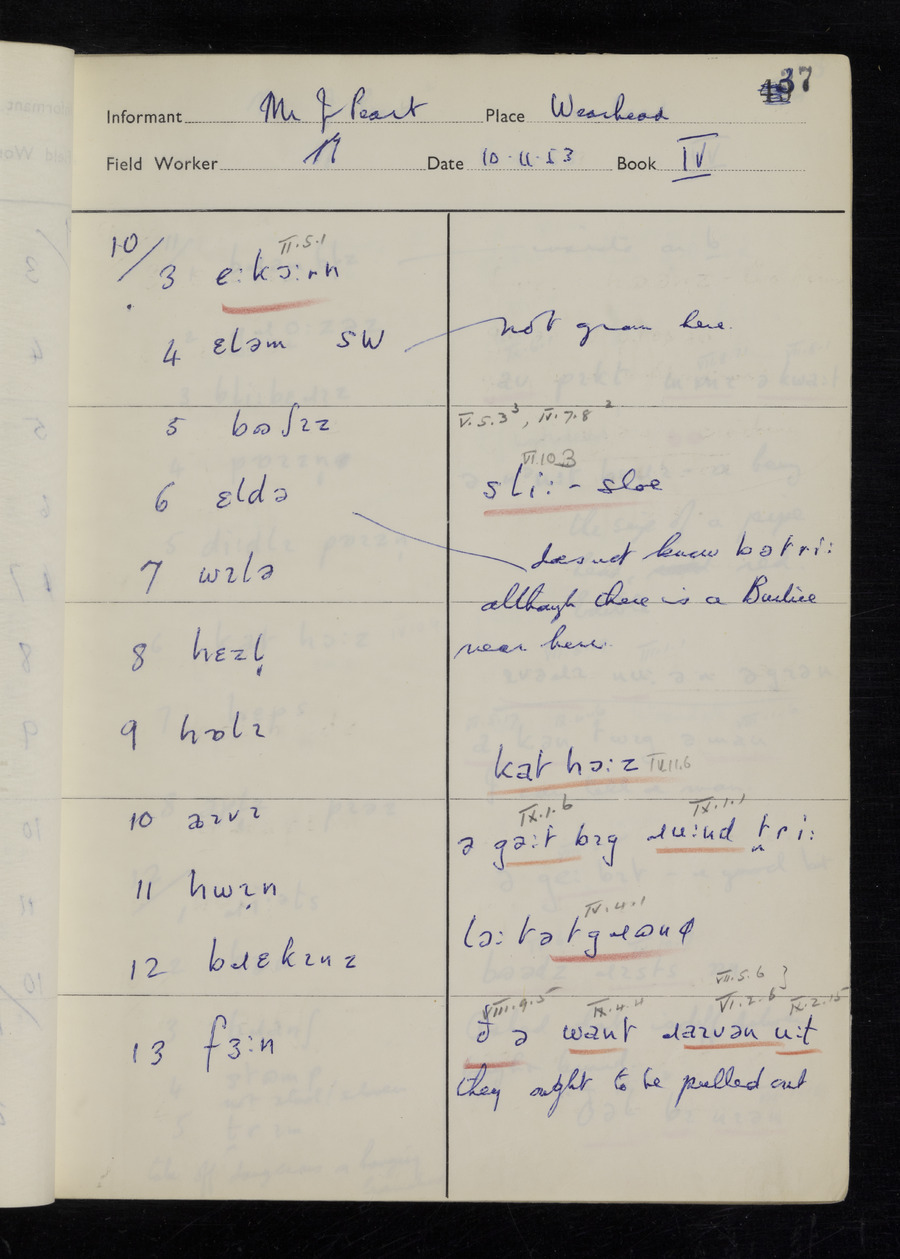 37
Informant Mr J Peart Place Wearhead
Field Worker Date 10.11.53 Book IV
10/
II.5.1
3 e:kɔ:rn
4 ɛləm SW
not grown here.
5 bʊʃɪz
V.5.3³, IV.7.8²
VI.10.3
6 ɛldə
sli: - sloe
7 wɪlə
does not know bətri:
although there is a
near here.
8 hɛzl̩
9 hɔlɪ
kat hɔ:z IV.11.6
10 aɪvɪ
IX.1.6 IX.1.1
ə gə:t bɪg ɹu:nd tri:
11 hwɪn
IV.4.1
lɔ:tətgɹəʊnd
12 bɹɛkɪnz
VIII.9.5 IX.4.4 VII.5.6 VI.2.6 IX.2.15
13 fɜ:n
ðə want ɹaɪvən u:t
they ought to be pulled out